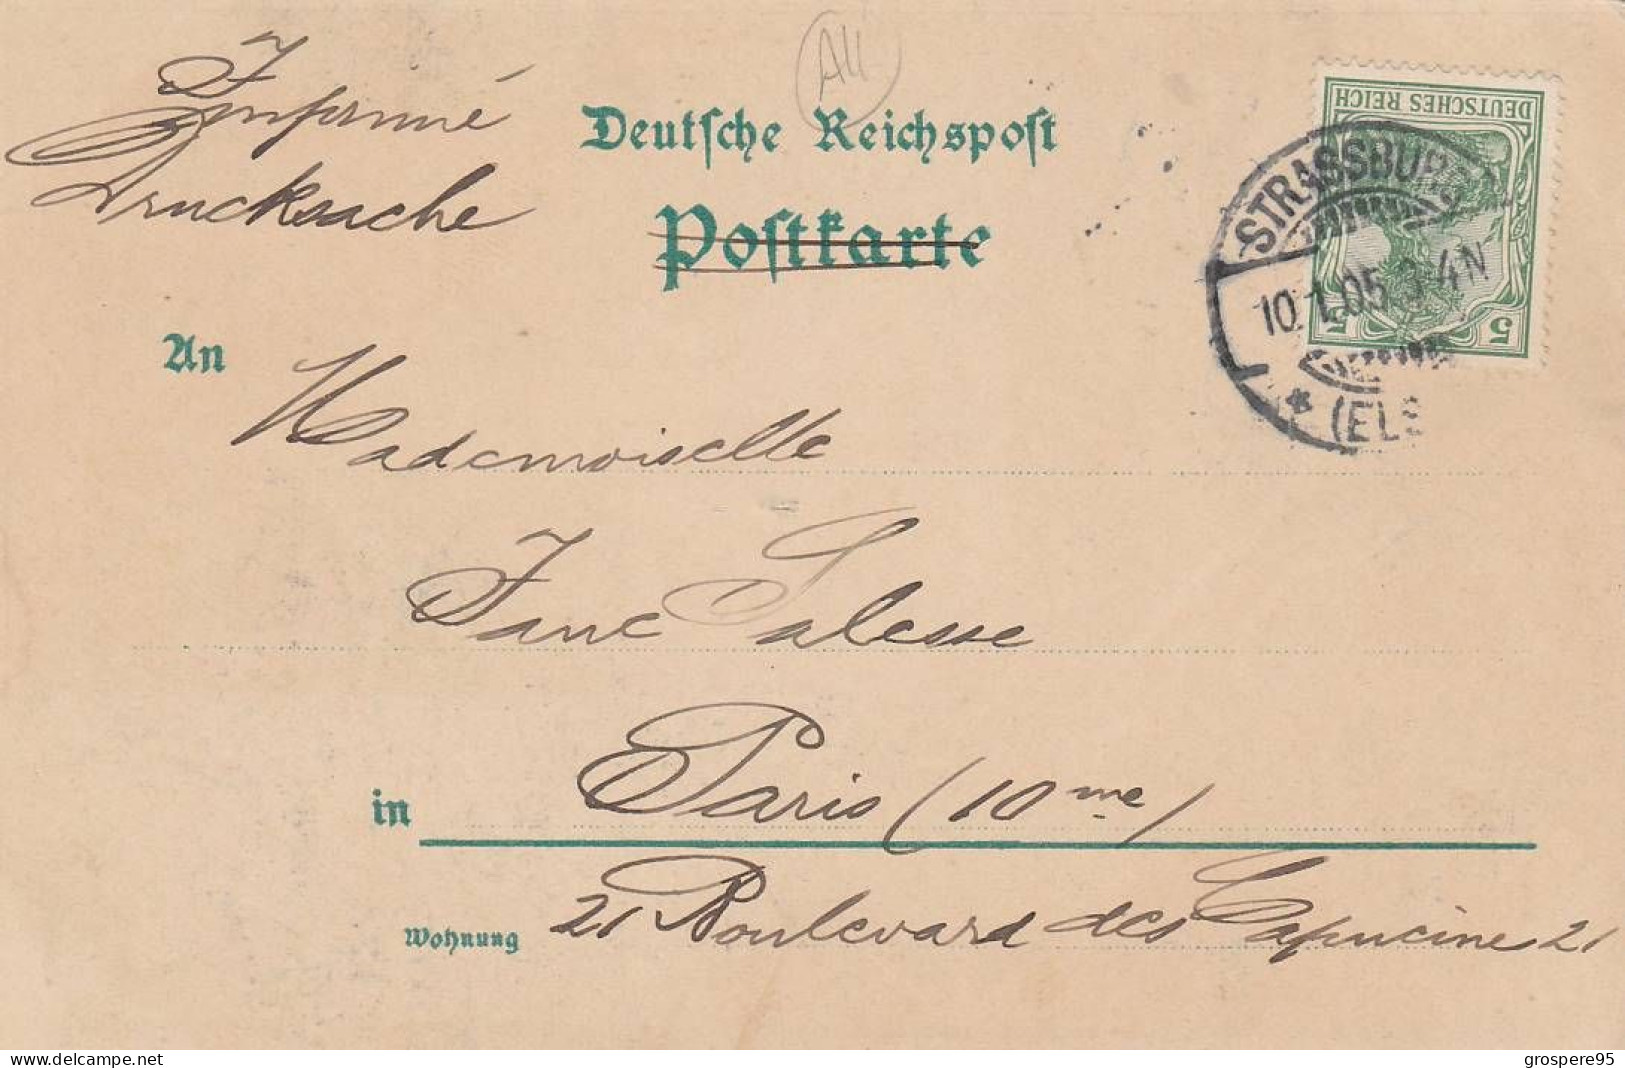 All
Imprimé
Drucksache
Deutsche Reichspost
Postkarte
DEUTSCHES REICH
5 5
STRASSBURG
10.1.05.3-4N
* (ELS
An Mademoiselle
Jane Salesse
in Paris (10me)
Wohnung 21 Boulevard des Capucine 21
www.delcampe.net
grospere95